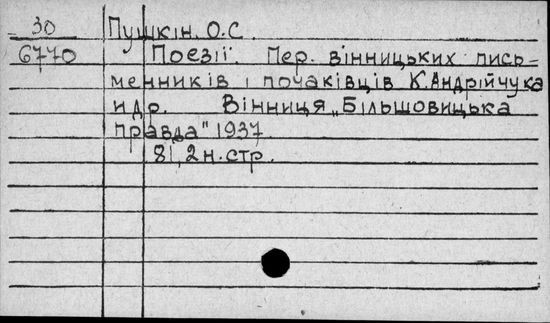 30 Пушкін, О.С.
6770 Поезії. Пер. вінницьких пись-
менників і початківців К. Андрійчука
и др. Вінниця „Більшовицька
правда" 1937.
81, 2 н. стр.